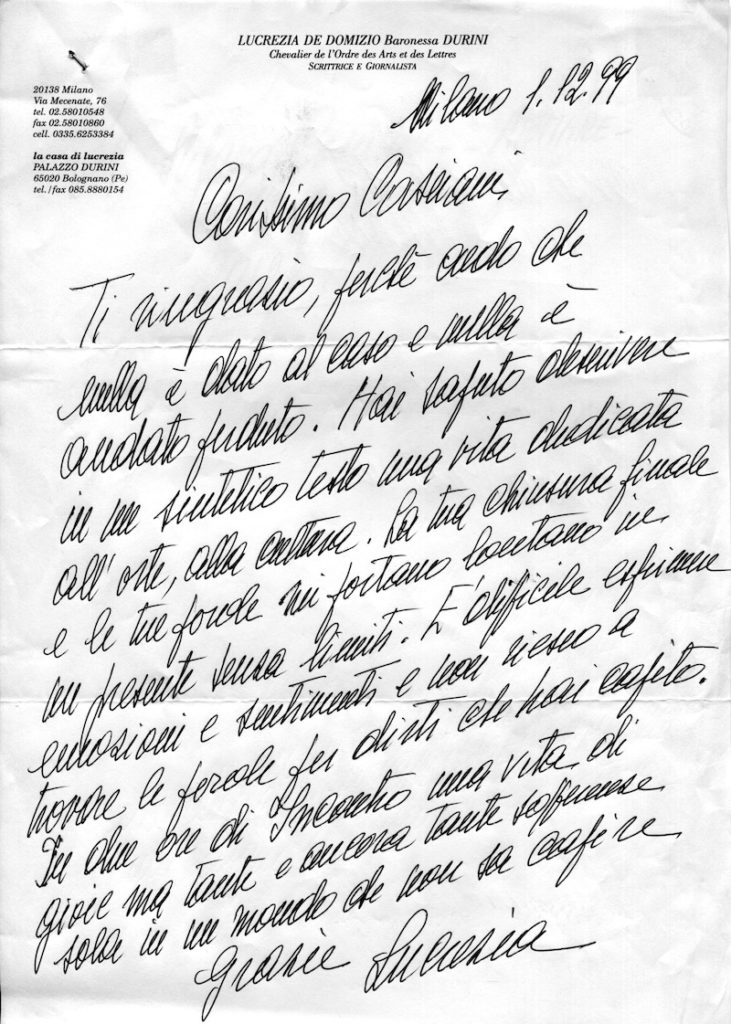 LUCREZIA DE DOMIZIO Baronessa DURINI
Chevalier de l'Ordre des Arts et des Lettres
SCRITTRICE E GIORNALISTA
20138 Milano
Via Mecenate, 76
tel. 02.58010548
fax 02.58010860
cell. 0335.6253384
la casa di lucrezia
PALAZZO DURINI
65020 Bolognano (Pe)
tel./fax 085.8880154
Milano 1.12.99
Carissimo Casciani,
Ti ringrazio, perché credo che
nulla è dato al caso e nulla è
andato perduto. Hai saputo descrivere
in un sintetico testo una vita dedicata
all'arte, alla cultura. La tua chiusura finale
e le tue parole mi portano lontano in
un presente senza limiti. E' difficile esprimere
emozioni e sentimenti e non riesco a
trovare le parole per dirti che hai capito.
In due ore di Incontro una vita di
gioie ma tante e ancora tante sofferenze
sola in un mondo che non sa capire
Grazie Lucrezia